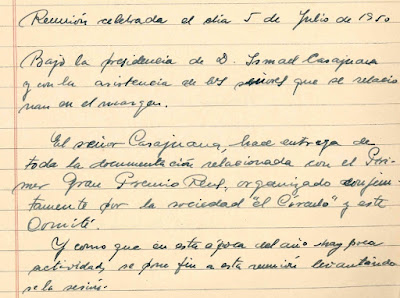 Reunión celebrada el dia 5 de Julio de 1950
Bajo la presidencia de D. Ismael Casajuana
y con la asistencia de los señores que se relacio
nan en el margen.
El señor Casajuana, hace entrega de
toda la documentación relacionada con el Pri-
mer Gran Premio Reus, organizado conjun-
tamente por la sociedad "el Circulo" y este
Comité.
Y como que en esta epoca del año hay poca
actividad, se pone fin a esta reunión levantando
se la sesión.